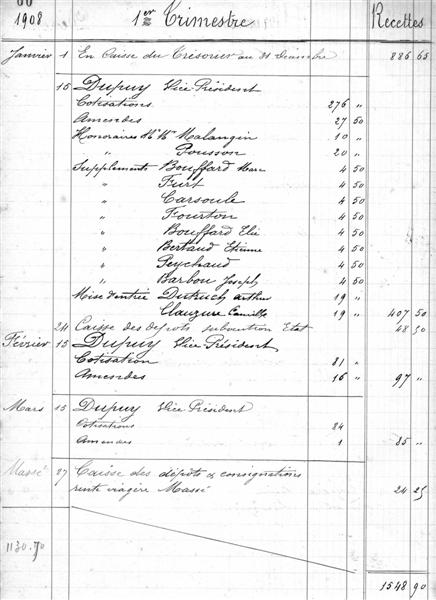 1908 1er Trimestre Recettes
Janvier 1 En Caisse du Trésorier au 31 Décembre 886 65
15 Dupuy Vice Président
Cotisations 276 "
Amendes 27 50
Honoraires Mr Mr Malangin 10 "
" Pousson 20 "
Supplements Bouffard Marc 4 50
" Furt 4 50
" Carsoule 4 50
" Fourton 4 50
" Bouffard Elie 4 50
" Bertaud Etienne 4 50
" Peychaud 4 50
" Barbou Joseph 4 50
Mise d'entrée Dutruch Arthur 19 "
" Clauzure Camille 19 " 407 50
24 Caisse des dépots subvention Etat 48 50
Février 15 Dupuy Vice Président
Cotisation 81 "
Amendes 16 " 97 "
Mars 15 Dupuy Vice Président
Cotisations 84
Amendes 1 85 "
Massé 27 Caisse des dépôts & consignations
rente viagère Massé 24 25
1130.70
1548 90